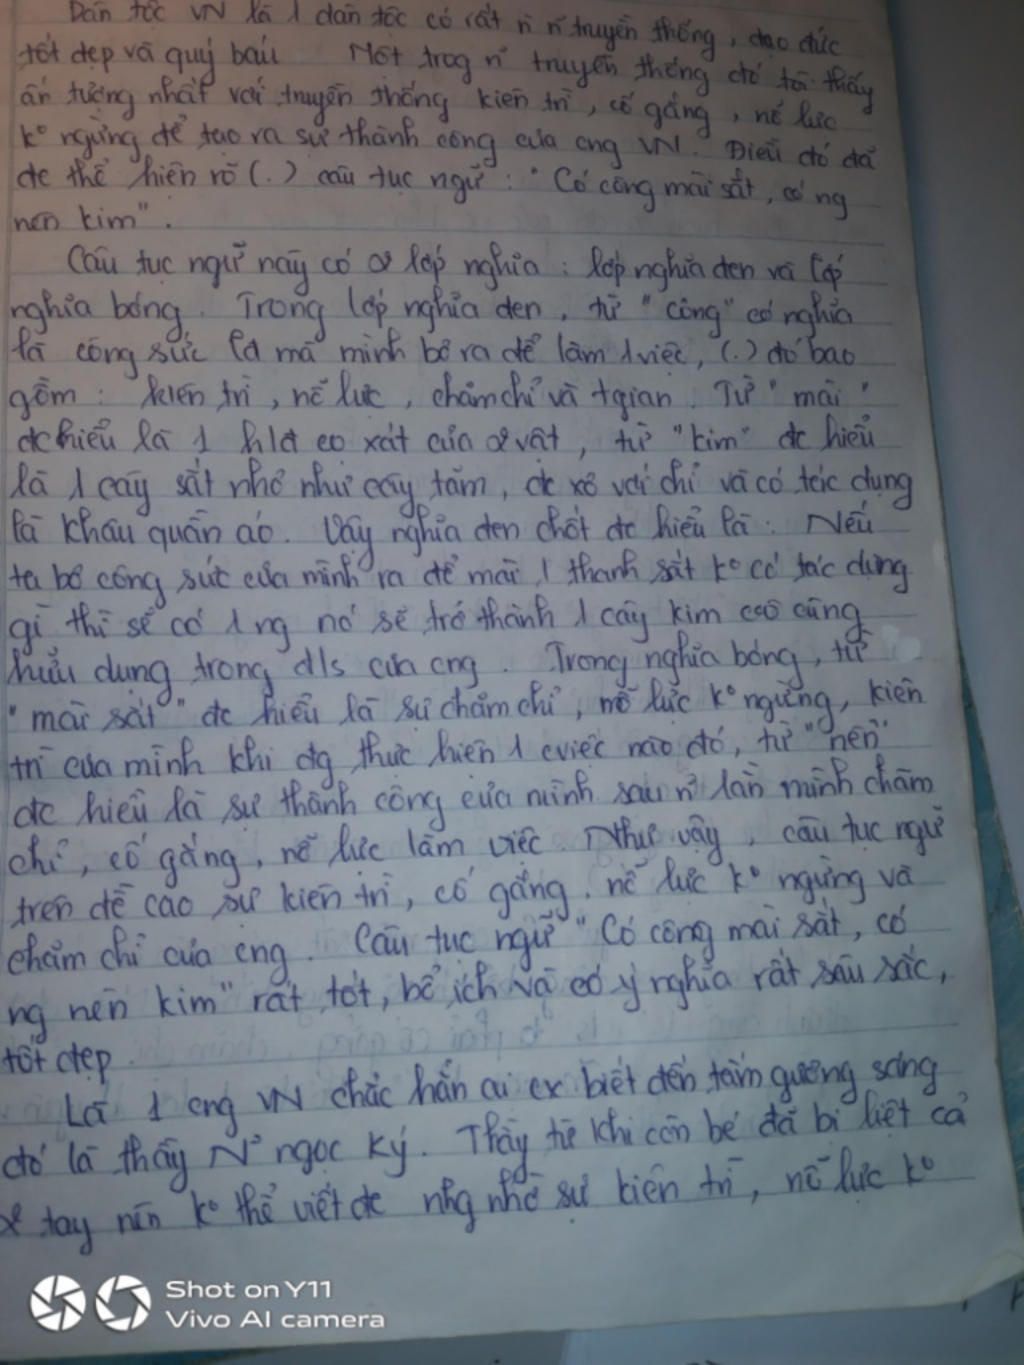 Dân tộc VN là 1 dân tộc có rất n n~ truyền thống, đạo đức
tốt đẹp và quý báu Một trog n~ truyền thống đó tôi thấy
ấn tượng nhất với truyền thống kiên trì, cố gắng, nỗ lực
ko ngừng để tạo ra sự thành công của cng VN. Điều đó đã
đc thể hiện rõ (.) câu tục ngữ: "Có công mài sắt, có ng
nên kim".
Câu tục ngữ này có 2 lớp nghĩa: lớp nghĩa đen và lớp
nghĩa bóng. Trong lớp nghĩa đen, từ "công" có nghĩa
là công sức mà mình bỏ ra để làm 1 việc, (.) đó bao
gồm: kiên trì, nỗ lực, chăm chỉ và tgian. Từ "mài"
đc hiểu là 1 hđ cọ xát của 2 vật, từ "kim" đc hiểu
là 1 cây sắt nhỏ như cây tăm, đc xỏ với chỉ và có tác dụng
là khâu quần áo. Vậy nghĩa đen chốt đc hiểu là: Nếu
ta bỏ công sức của mình ra để mài 1 thanh sắt ko có tác dụng
gì thì sẽ có 1 ng nó sẽ trở thành 1 cây kim vô cùng
hữu dụng trong đ/s của cng. Trong nghĩa bóng, từ
"mài sắt" đc hiểu là sự chăm chỉ, nỗ lực ko ngừng, kiên
trì của mình khi đg thực hiện 1 cviệc nào đó, từ "nên"
đc hiểu là sự thành công của mình sau n~ lần mình chăm
chỉ, cố gắng, nỗ lực làm việc. Như vậy, câu tục ngữ
trên đề cao sự kiên trì, cố gắng, nỗ lực ko ngừng và
chăm chỉ của cng. Câu tục ngữ "Có công mài sắt, có
ng nên kim" rất tốt, bổ ích và có ý nghĩa rất sâu sắc,
tốt đẹp
Là 1 cng VN chắc hẳn ai cx biết đến tấm gương sáng
đó là thầy N~ ngọc Ký. Thầy từ khi còn bé đã bị liệt cả
2 tay nên ko thể viết đc nhg nhờ sự kiên trì, nỗ lực ko
Shot on Y11
Vivo AI camera